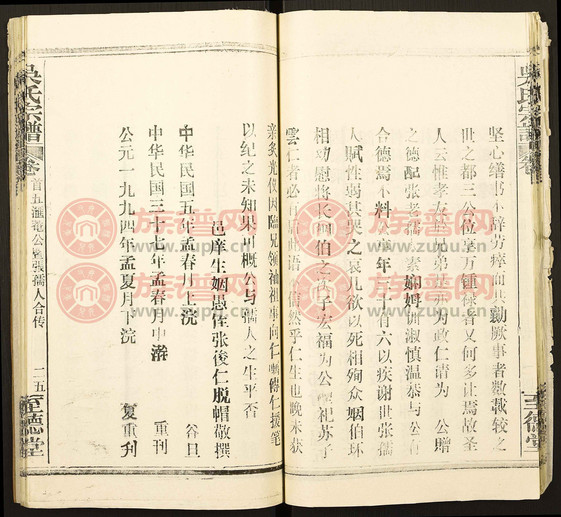 吳氏宗譜
坚心缮书不辞劳瘁而共勷厥事者数载较之
世之都三公位享万锺禄者又何多让焉故圣
人云惟孝友兄弟是亦为政仁请为 公赠
之德配张老孺人素娴姆训淑慎温恭与公
合德焉不料公年三十有六以疾谢世张孺
人赋性弱其哭之哀几欲以死相殉众姻伯环
相劝慰将长四伯之次子宏福为公承祀苏子
云仁者必有后此语信然乎仁生也晚未获
亲炙光仪因临兄领袖祖事向仁备传仁援笔
以纪之未知果可概公与孺人之生平否
邑庠生姻愚侄张俊仁脱帽敬撰
中华民国五年孟春月上浣 谷旦
中华民国三十七年孟春月中澣 重刊
公元一九九四年孟夏月下浣 复重刊
吳氏宗譜 卷首五滙菴公暨張孺人合传 二五 至德堂
至德堂
族谱网
www.zupu.cn
族谱网
www.zupu.cn